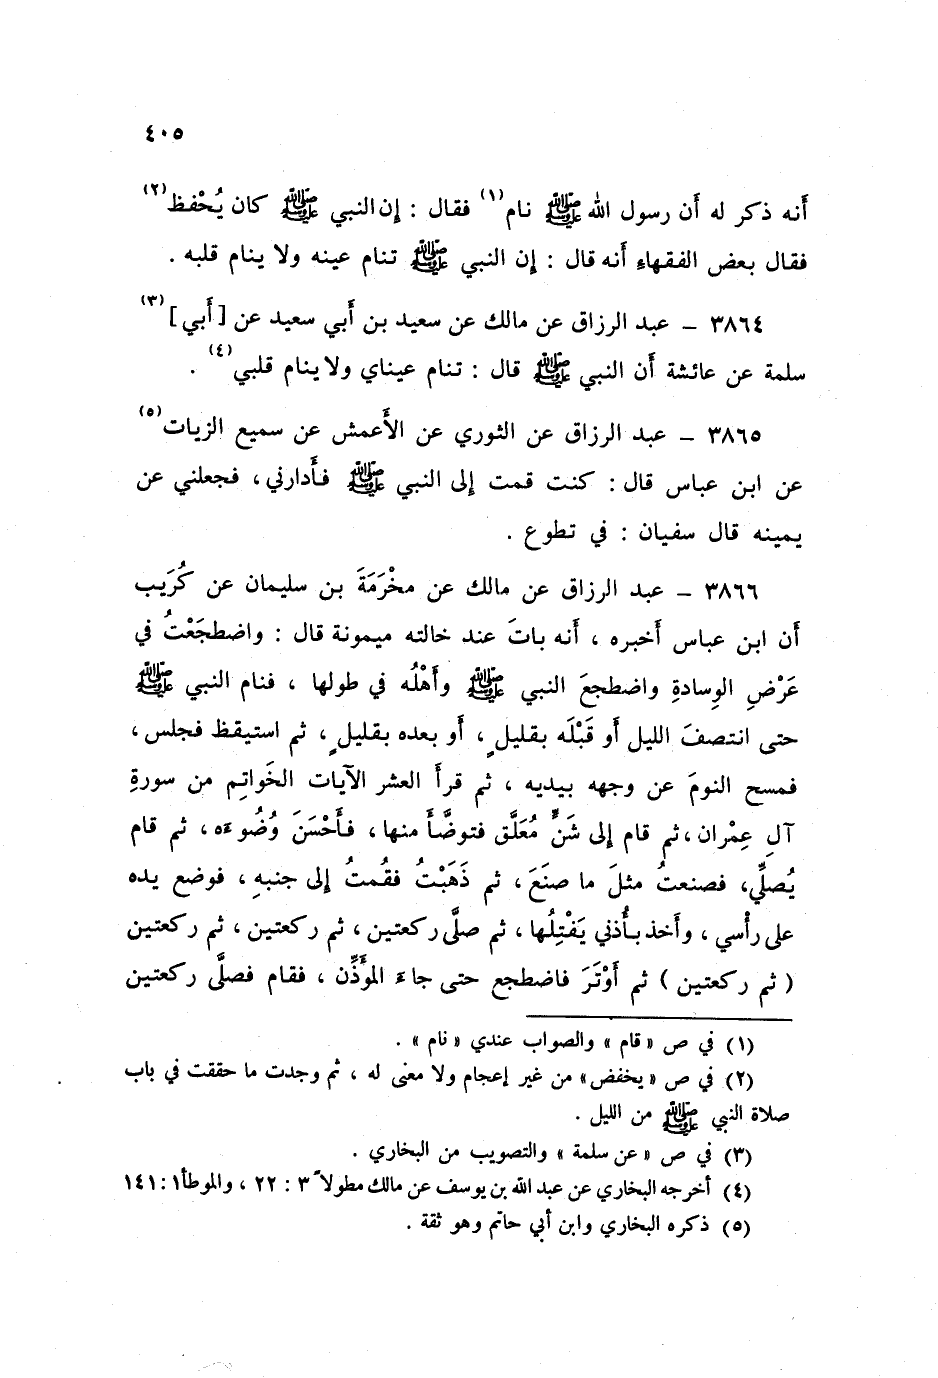 ٤٠٥
أنه ذكر له أن رسول الله ﷺ نام(١) فقال : إن النبي ﷺ كان يُحْفظ(٢)
فقال بعض الفقهاءِ أنه قال : إن النبي ﷺ تنام عينه ولا ينام قلبه .
٣٨٦٤ – عبد الرزاق عن مالك عن سعيد بن أبي سعيد عن [أبي](٣)
سلمة عن عائشة أن النبي ﷺ قال : تنام عيناي ولا ينام قلبي(٤) .
٣٨٦٥ – عبد الرزاق عن الثوري عن الأعمش عن سميع الزيات(٥)
عن ابن عباس قال : كنت قمت إلى النبي ﷺ فأدارني ، فجعلني عن
يمينه قال سفيان : في تطوع .
٣٨٦٦ – عبد الرزاق عن مالك عن مخْرَمَةَ بن سليمان عن كُرَيب
أن ابن عباس أخبره ، أنه باتَ عند خالته ميمونة قال : واضطجَعْتُ في
عَرْضِ الوِسادةِ واضطجعَ النبي ﷺ وأهْلُه في طولها ، فنام النبي ﷺ
حتى انتصفَ الليل أو قَبْلَه بقليلٍ ، أو بعده بقليلٍ ، ثم استيقظ فجلس ،
فمسح النومَ عن وجهه بيديه ، ثم قرأ العشر الآيات الخَواتِم من سورةِ
آلِ عِمْران ، ثم قام إلى شَنٍّ مُعَلَّق فتوضَّأ منها ، فأحْسَنَ وُضُوءَه ، ثم قام
يُصلِّي ، فصنعتُ مثلَ ما صنَعَ ، ثم ذَهَبْتُ فقُمتُ إلى جنبهِ ، فوضع يده
على رأْسي ، وأخذ بأُذني يَفْتِلُها ، ثم صلَّى ركعتين ، ثم ركعتين ، ثم ركعتين
( ثم ركعتين ) ثم أوْتَرَ فاضطجع حتى جاءَ المؤَذِّن ، فقام فصلَّى ركعتين
(١) في ص «قام» والصواب عندي «نام» .
(٢) في ص «يخفض» من غير إعجام ولا معنى له ، ثم وجدت ما حققت في باب
صلاة النبي ﷺ من الليل .
(٣) في ص «عن سلمة» والتصويب من البخاري .
(٤) أخرجه البخاري عن عبد الله بن يوسف عن مالك مطولاً ٣ : ٢٢ ، والموطأ ١ : ١٤١
(٥) ذكره البخاري وابن أبي حاتم وهو ثقة .